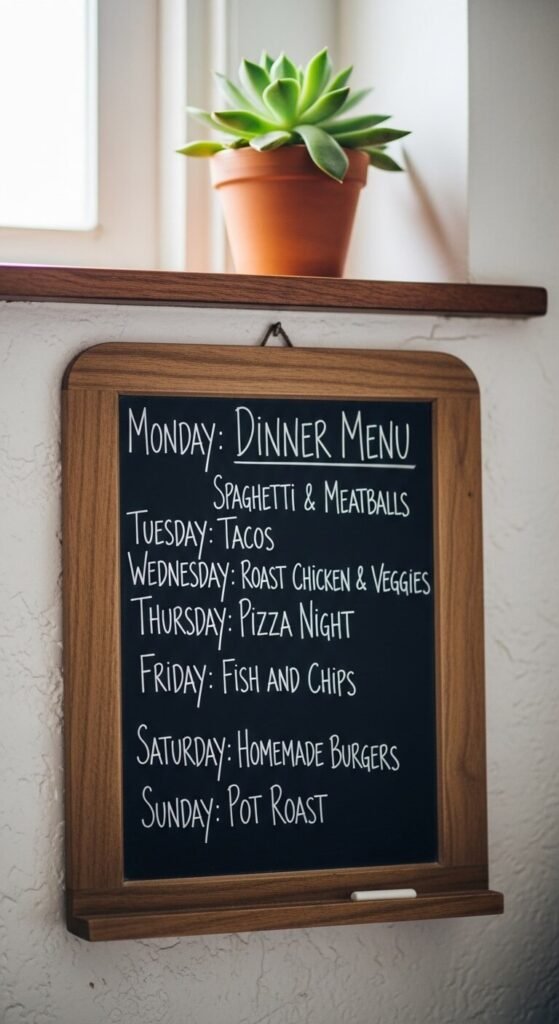 Monday: Dinner Menu
Spaghetti & Meatballs
Tuesday: Tacos
Wednesday: Roast Chicken & Veggies
Thursday: Pizza Night
Friday: Fish and Chips
Saturday: Homemade Burgers
Sunday: Pot Roast